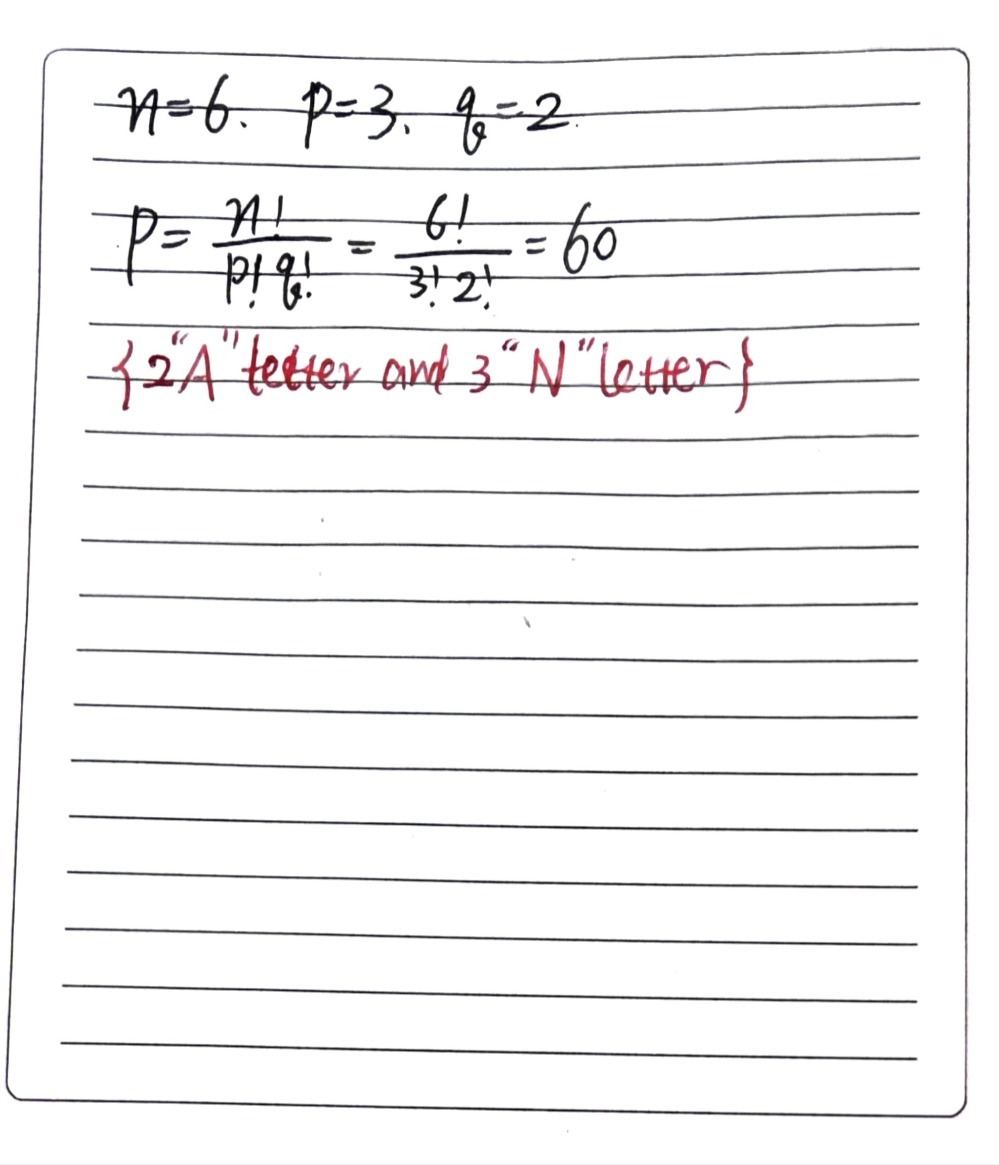 n=6. p=3. q=2.
P= n!/p!q! = 6!/3!2! = 60
{2"A" letter and 3 "N" letter}